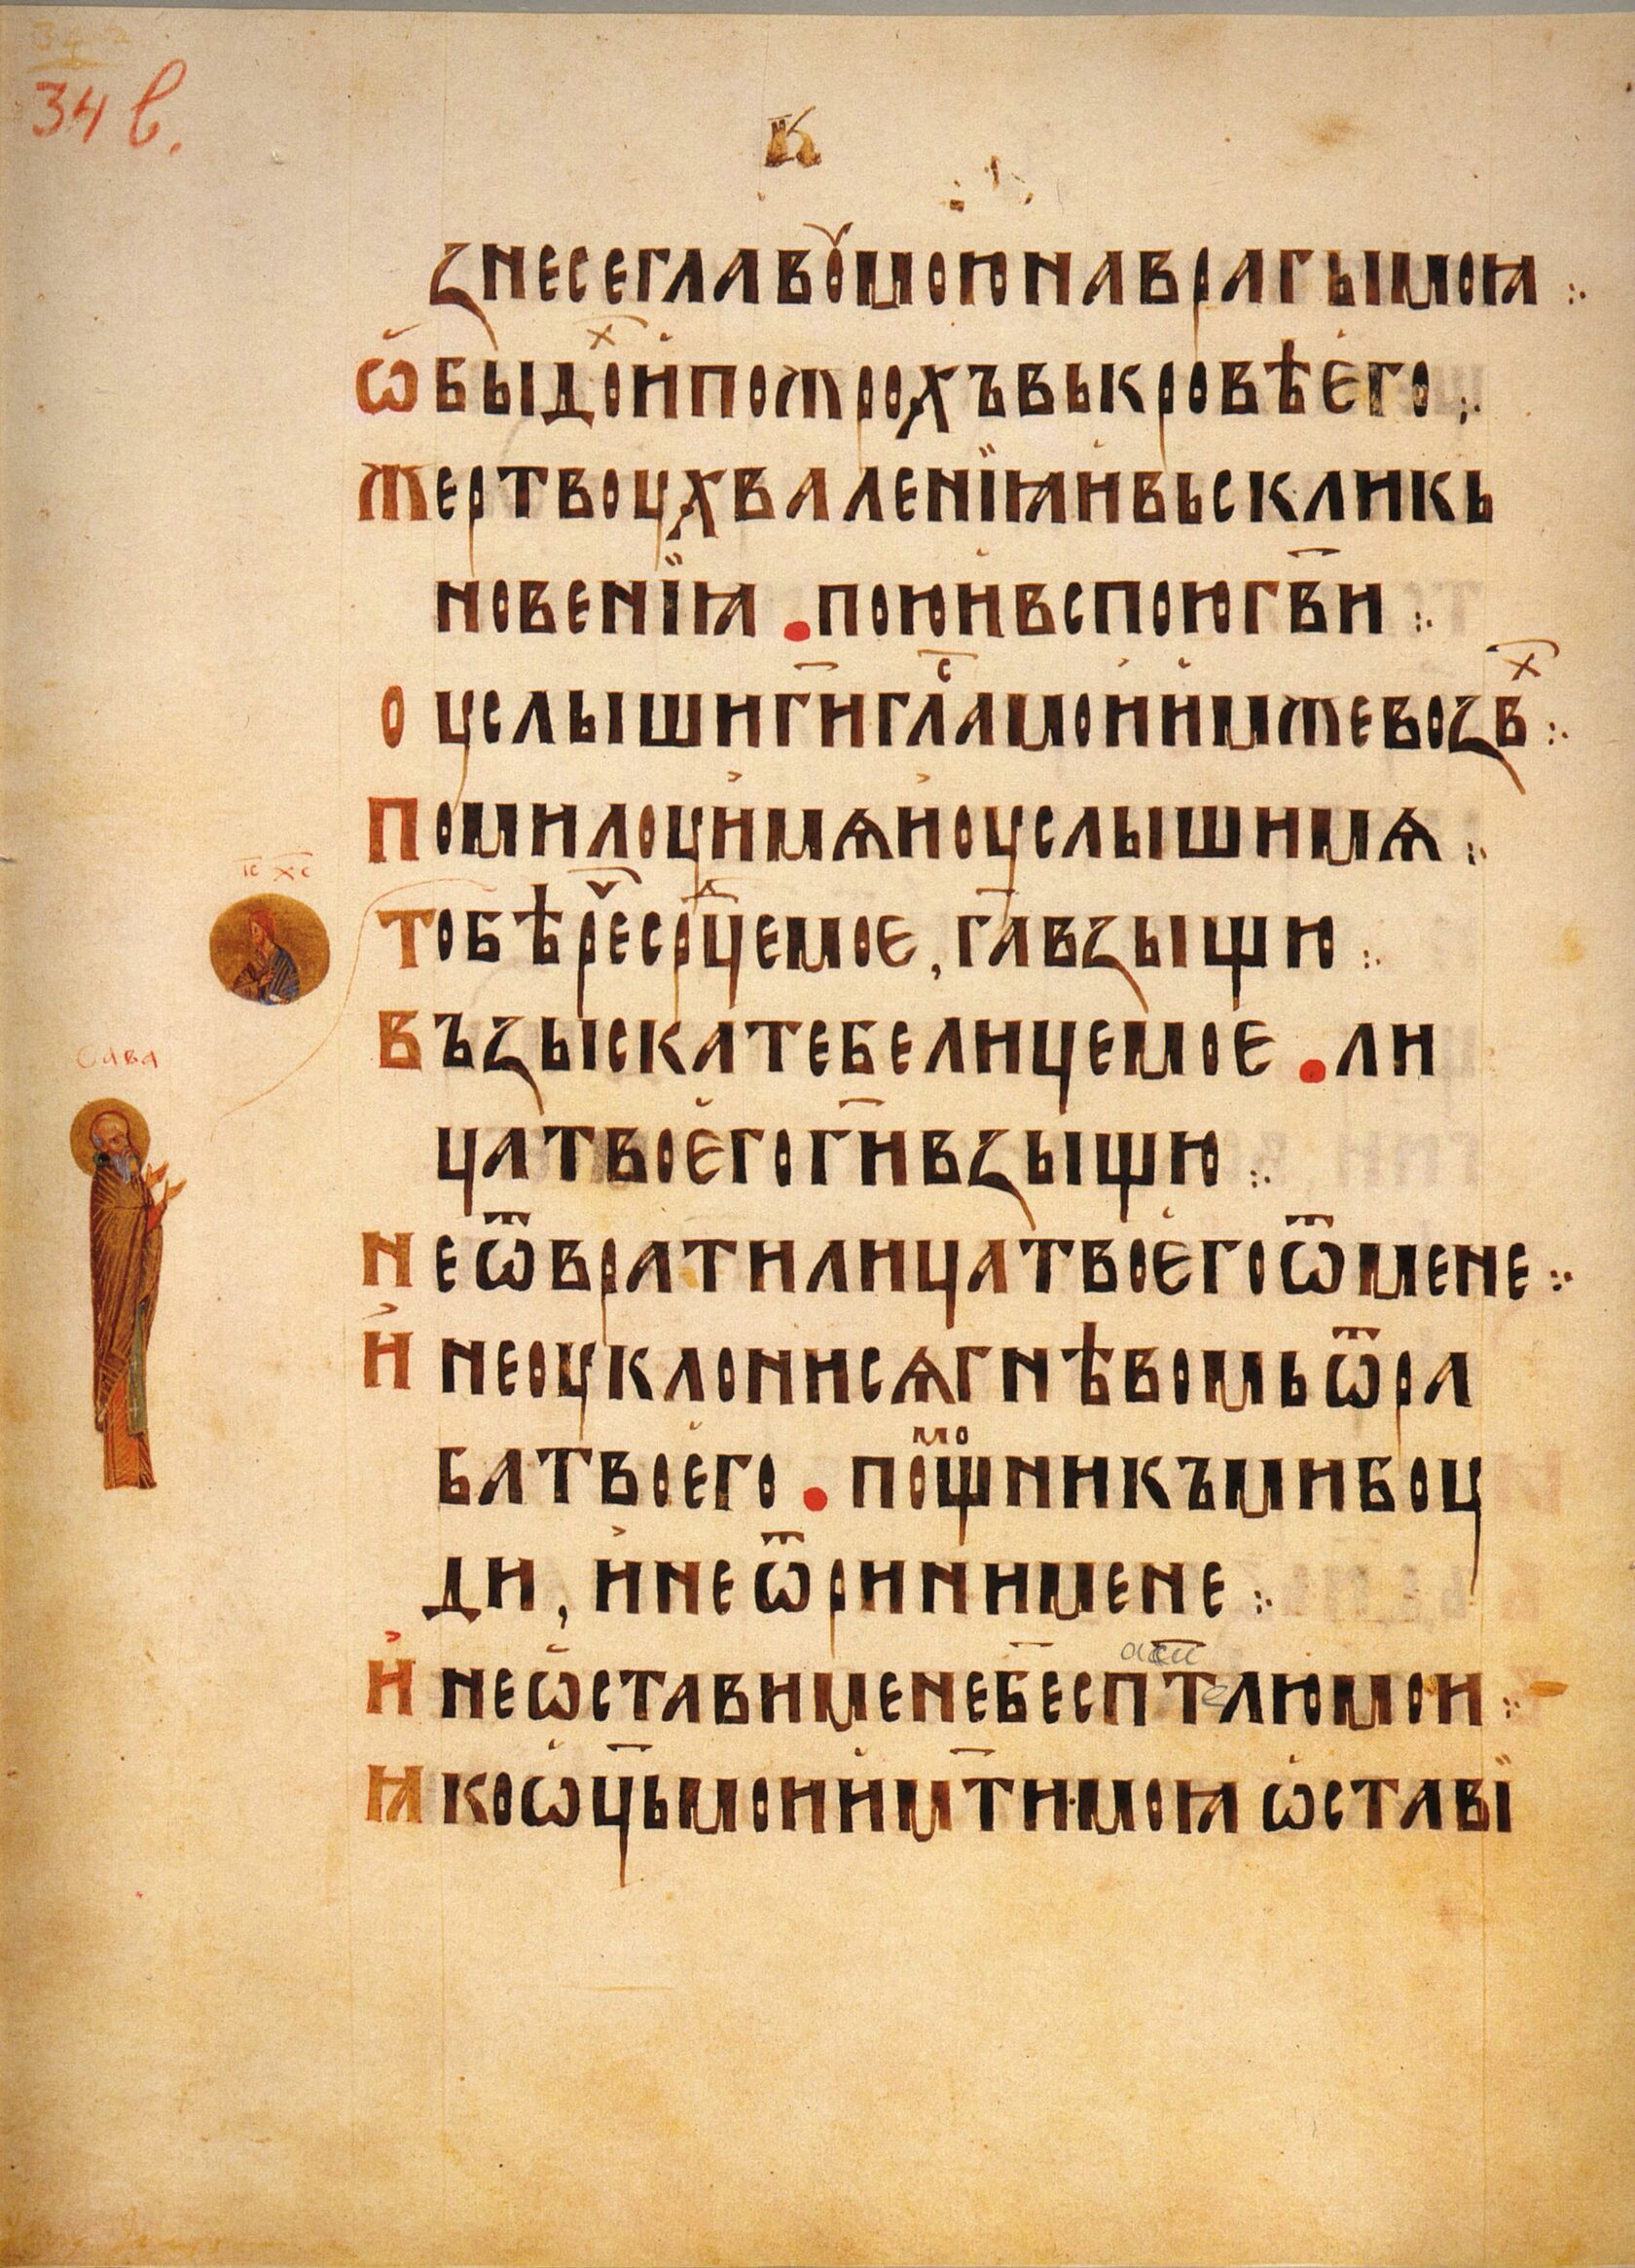 34 в.
К
ꙁнесеглавꙋ̆моюнаврагымоꙗ :·
Ѡ҆быдо́ⷯи҆пожрохъвькровѣе҆го :·
жертвоухваленїꙗи҆вьсклик̾ь
новенїꙗ . поюи҆вспоюгв҃и :·
оуслышиг҃игла́ⷭмои҆и҆мжевоꙁвⷯ :·
Помилоуи҆мѧи҆оуслышимѧ :·
Тобѣреⷱ҇ср҃цемоє , г҃авꙁыщю :·
Въꙁыскатебелицемоє . ли
цатвое҆гог҃ивꙁыщю :·
Неѿвратилицатвое҆гоѿмене :·
И҆ неоуклонисѧгнѣвомьѿра
батвое҆го . помо́щникъмибоу
ди , и҆неѿринимене :·
И҆ неѡ҆ставименеб҃есп҃телюмои :·
аси
Ꙗкоѡ҆ц҃ьмоии҆мт҃имоꙗ ѡ҆ставї
іс хс
Сава